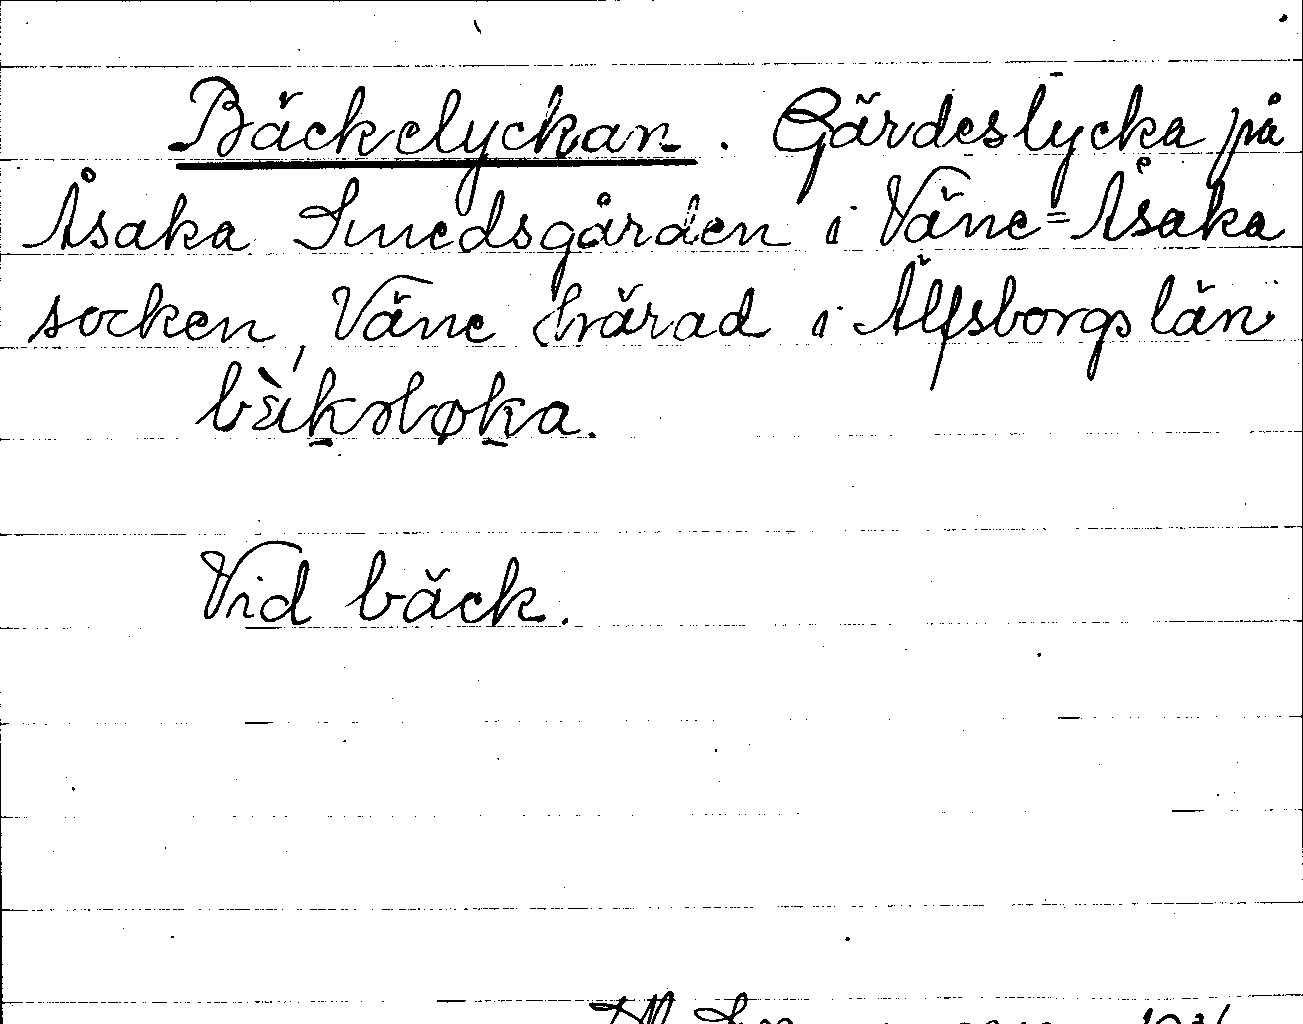 Bäckelyckan. Gärdeslycka på
Åsaka Smedsgården i Väne=Åsaka
socken, Väne härad i Älfsborgs län
Vid bäck.